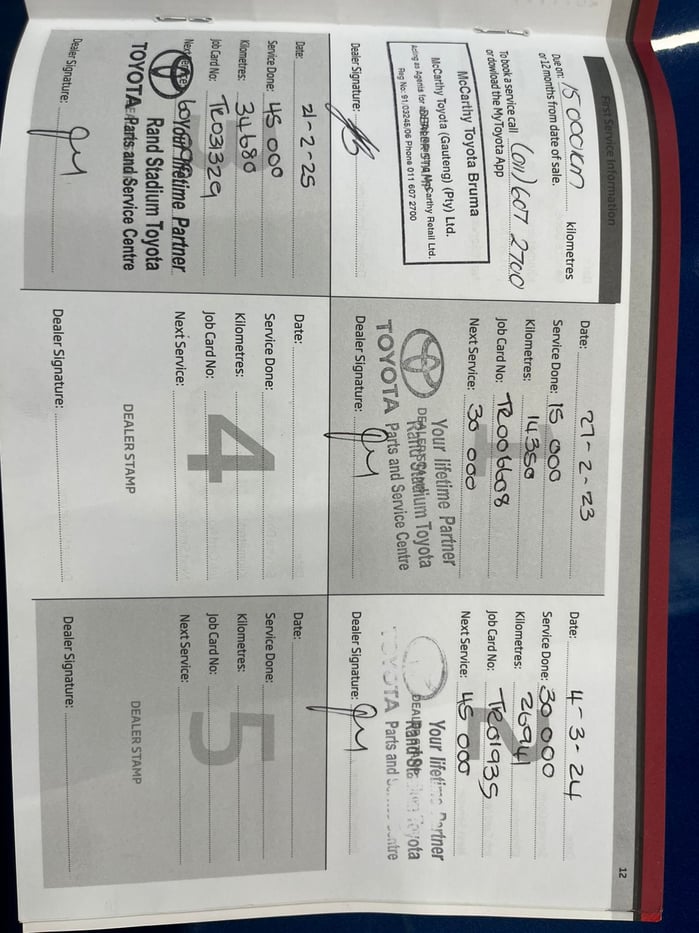 First Service Information
Due on: 15 000km kilometres
or 12 months from date of sale.
To book a service call (011) 607 2700
or dowload the MyToyota App
McCarthy Toyota Bruma
McCarthy Toyota (Gauteng) (Pty) Ltd.
DEALER STAMP
Acting as Agents for McCarthy Retail Ltd.
Reg No. 91/03245/06 Phone 011 607 2700
Dealer Signature:
Date: 27-2-23
Service Done: 15 000
Kilometres: 14350
Job Card No: TR006608
Next Service: 30 000
1
Your lifetime Partner
DEALER STAMP
Rand Stadium Toyota
TOYOTA Parts and Service Centre
Dealer Signature:
Date: 4-3-24
Service Done: 30 000
Kilometres: 26941
Job Card No: TR01935
Next Service: 45 000
2
Your lifetime Partner
Toyota
TOYOTA Parts and
Dealer Signature:
Date: 21-2-25
Service Done: 45 000
Kilometres: 34680
Job Card No: TR03329
Next Service: 60 000
3
Your lifetime Partner
Rand Stadium Toyota
TOYOTA Parts and Service Centre
Dealer Signature:
Date:
Service Done:
Kilometres:
Job Card No:
Next Service:
4
DEALER STAMP
Dealer Signature:
Date:
Service Done:
Kilometres:
Job Card No:
Next Service:
5
DEALER STAMP
Dealer Signature:
12